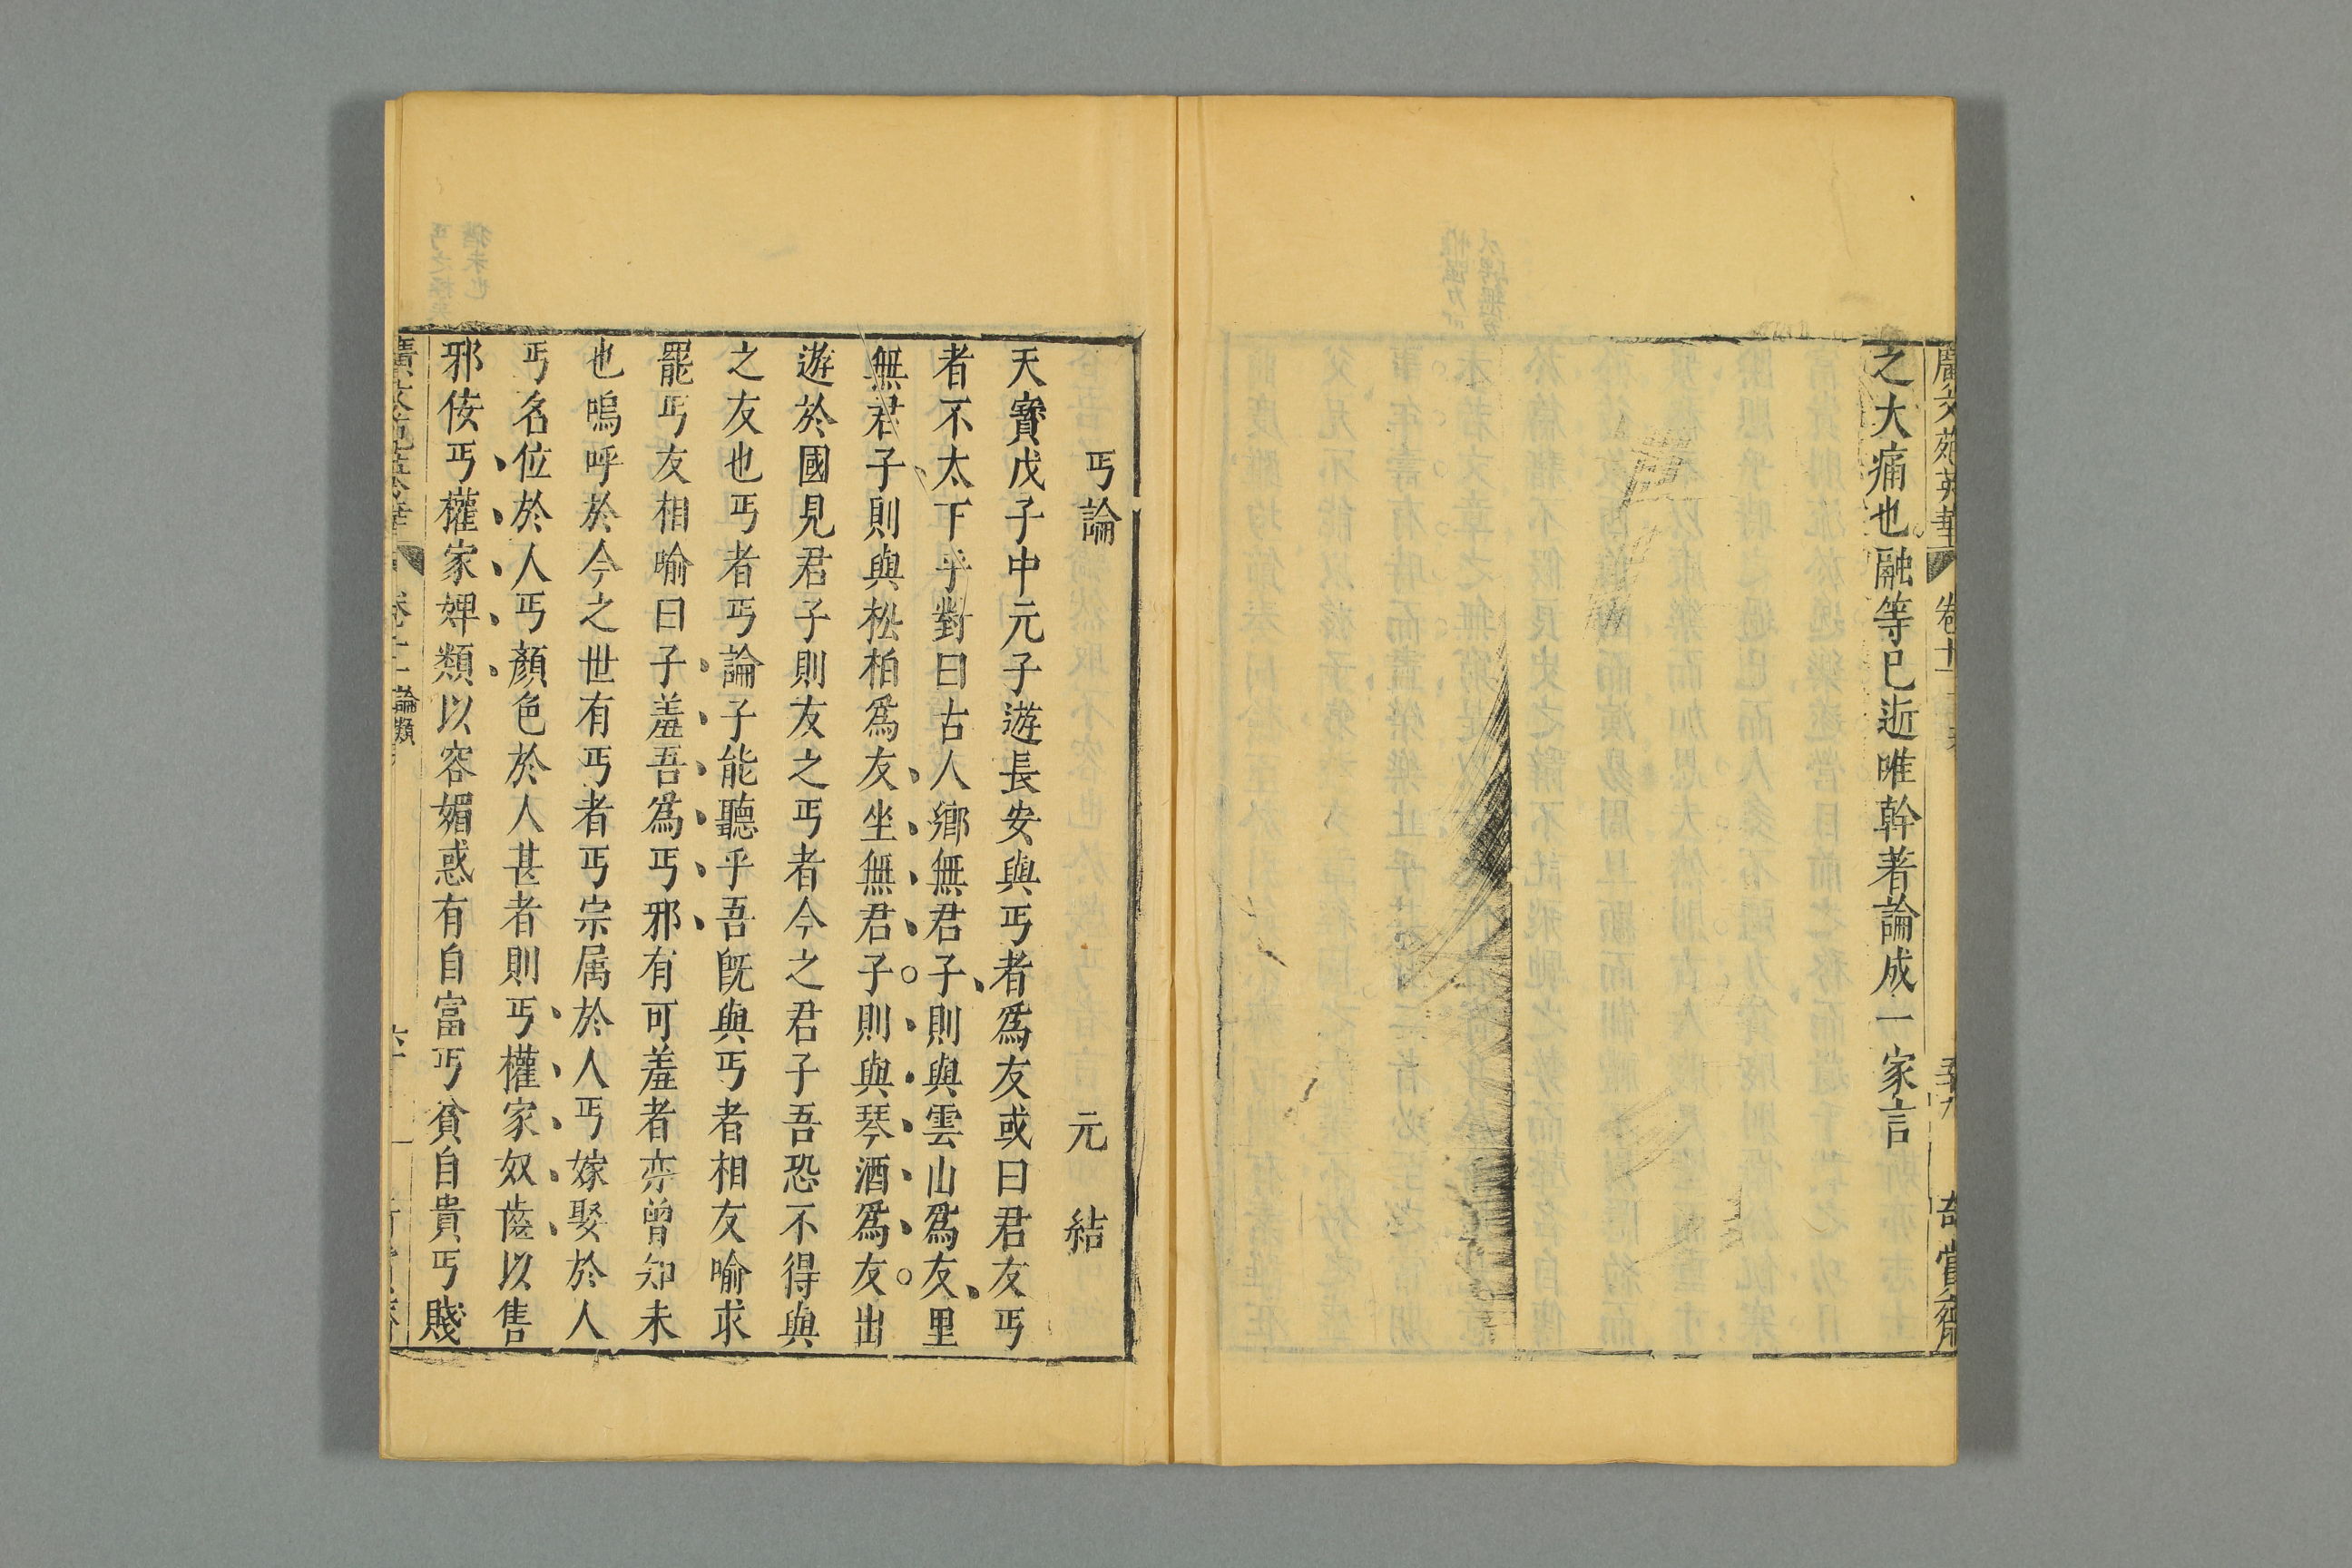 廣文苑英華 卷十二 奇賞齋
之大痛也融等已逝唯幹著論成一家言
丐論 元 結
天寶戊子中元子遊長安與丐者為友或曰君友丐
者不太下乎對曰古人鄉無君子則與雲山為友里
無君子則與松柏為友坐無君子則與琴酒為友出
遊於國見君子則友之丐者今之君子吾恐不得與
之友也丐者丐論子能聽乎吾既與丐者相友喻求
罷丐友相喻曰子羞吾為丐邪有可羞者亦曾知未
也嗚呼於今之世有丐者丐宗属於人丐嫁娶於人
丐名位於人丐顏色於人甚者則丐權家奴齒以售
邪佞丐權家婢類以容媚惑有自富丐貧自貴丐賤
論類